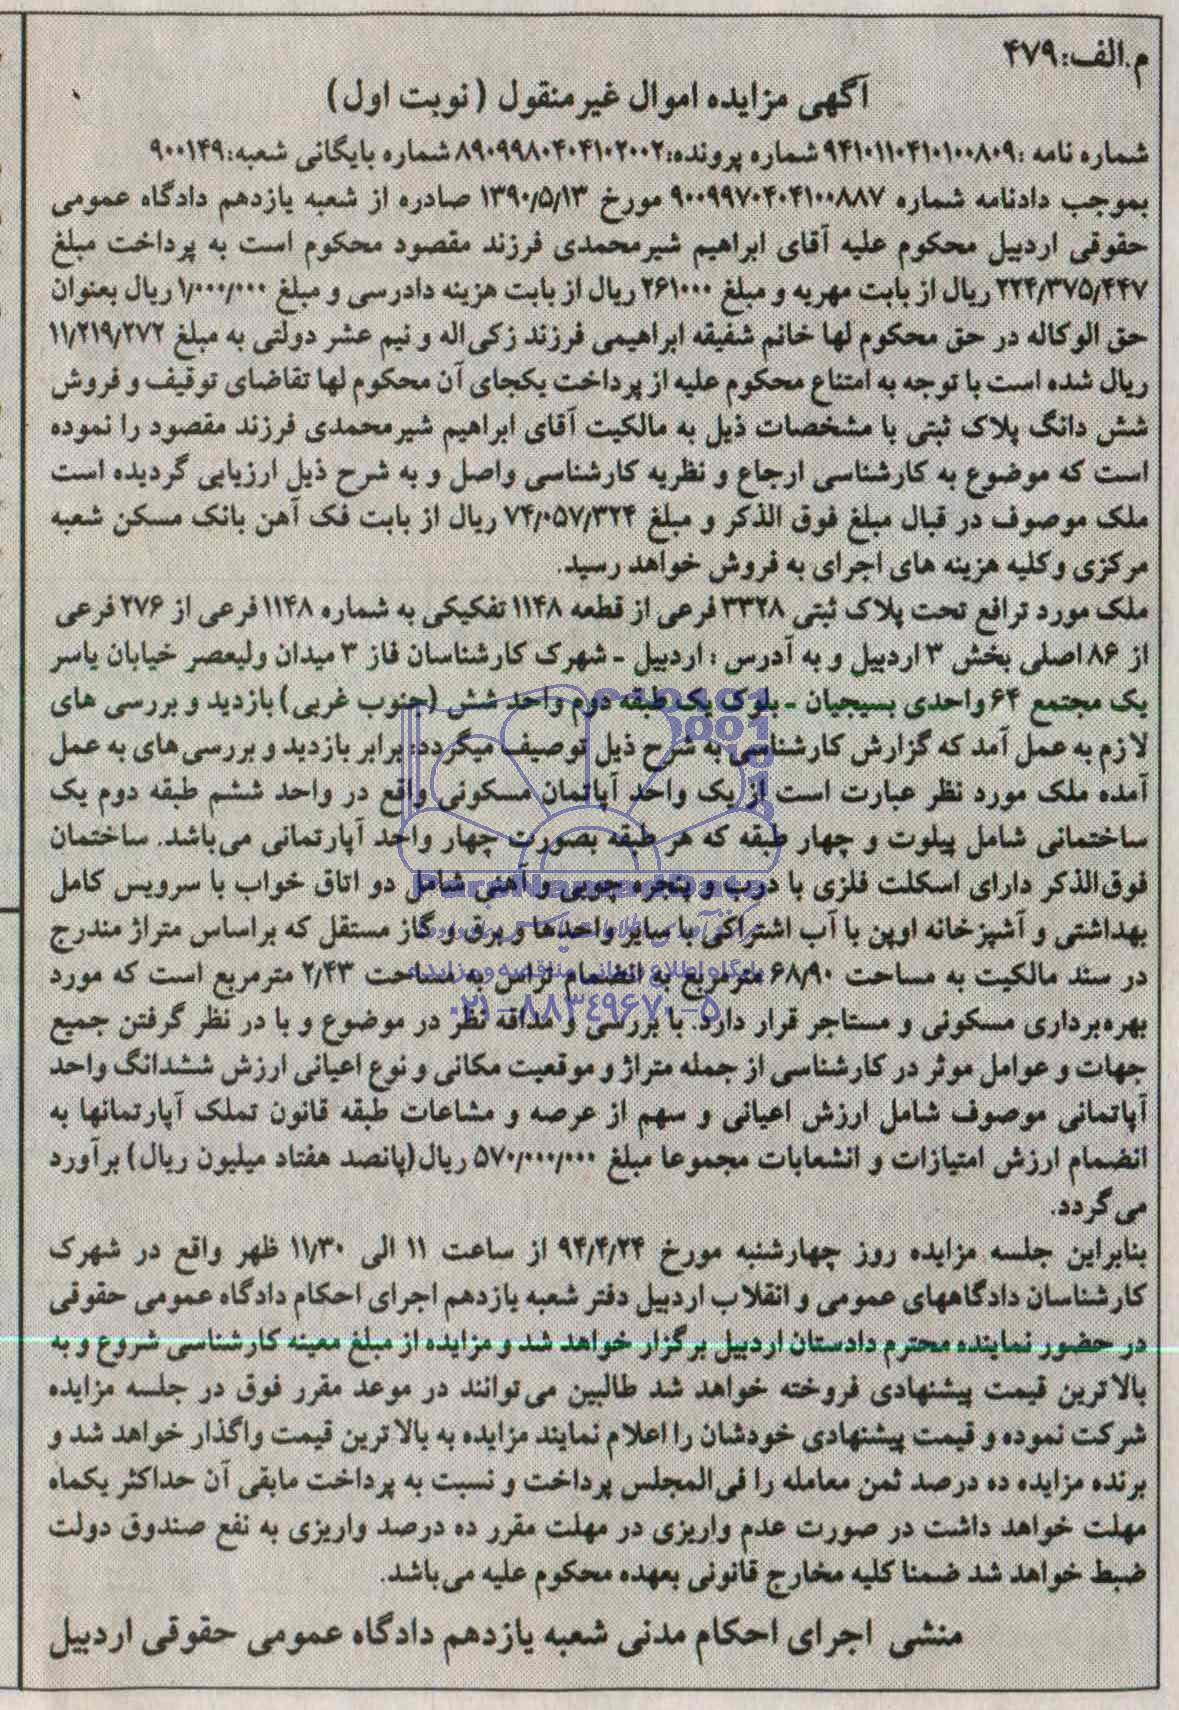 م.الف:۴۷۹
آگهی مزایده اموال غیرمنقول (نوبت اول)
شماره نامه :۹۴۱۰۱۱۰۴۱۰۱۰۰۸۰۹ شماره پرونده:۸۹۰۹۹۸۰۴۰۴۱۰۲۰۰۲ شماره بایگانی شعبه:۹۰۰۱۴۹
بموجب دادنامه شماره ۹۰۰۹۹۷۰۴۰۴۱۰۰۸۸۷ مورخ ۱۳۹۰/۵/۱۳ صادره از شعبه یازدهم دادگاه عمومی
حقوقی اردبیل محکوم علیه آقای ابراهیم شیرمحمدی فرزند مقصود محکوم است به پرداخت مبلغ
۲۲۴/۳۷۵/۴۴۷ ریال از بابت مهریه و مبلغ ۲۶۱۰۰۰ ریال از بابت هزینه دادرسی و مبلغ ۱/۰۰۰/۰۰۰ ریال بعنوان
حق الوکاله در حق محکوم لها خانم شفیقه ابراهیمی فرزند زکی اله و نیم عشر دولتی به مبلغ ۱۱/۲۱۹/۲۷۲
ریال شده است با توجه به امتناع محکوم علیه از پرداخت یکجای آن محکوم لها تقاضای توقیف و فروش
شش دانگ پلاک ثبتی با مشخصات ذیل به مالکیت آقای ابراهیم شیرمحمدی فرزند مقصود را نموده
است که موضوع به کارشناسی ارجاع و نظریه کارشناسی واصل و به شرح ذیل ارزیابی گردیده است
ملک موصوف در قبال مبلغ فوق الذکر و مبلغ ۷۴/۰۵۷/۳۲۴ ریال از بابت فک آهن بانک مسکن شعبه
مرکزی وکلیه هزینه های اجرای به فروش خواهد رسید.
ملک مورد ترافع تحت پلاک ثبتی ۳۳۲۸ فرعی از قطعه ۱۱۴۸ تفکیکی به شماره ۱۱۴۸ فرعی از ۲۷۶ فرعی
از ۸۶ اصلی بخش ۳ اردبیل و به آدرس : اردبیل - شهرک کارشناسان فاز ۳ میدان ولیعصر خیابان یاسر
یک مجتمع ۶۴ واحدی بسیجیان - بلوک یک طبقه دوم واحد شش (جنوب غربی) بازدید و بررسی های
لازم به عمل آمد که گزارش کارشناسی به شرح ذیل توصیف میگردد: برابر بازدید و بررسی‌های به عمل
آمده ملک مورد نظر عبارت است از یک واحد آپاتمان مسکونی واقع در واحد ششم طبقه دوم یک
ساختمانی شامل پیلوت و چهار طبقه که هر طبقه بصورت چهار واحد آپارتمانی می‌باشد. ساختمان
فوق‌الذکر دارای اسکلت فلزی با درب و پنجره چوبی و آهنی شامل دو اتاق خواب با سرویس کامل
بهداشتی و آشپزخانه اوپن با آب اشتراکی با سایر واحدها و برق و گاز مستقل که براساس متراژ مندرج
در سند مالکیت به مساحت ۶۸/۹۰ مترمربع به انضمام تراس به مساحت ۲/۴۳ مترمربع است که مورد
بهره‌برداری مسکونی و مستاجر قرار دارد. با بررسی و مداقه نظر در موضوع و با در نظر گرفتن جمیع
جهات و عوامل موثر در کارشناسی از جمله متراژ و موقعیت مکانی و نوع اعیانی ارزش ششدانگ واحد
آپاتمانی موصوف شامل ارزش اعیانی و سهم از عرصه و مشاعات طبقه قانون تملک آپارتمانها به
انضمام ارزش امتیازات و انشعابات مجموعا مبلغ ۵۷۰/۰۰۰/۰۰۰ ریال(پانصد هفتاد میلیون ریال) برآورد
می‌گردد.
بنابراین جلسه مزایده روز چهارشنبه مورخ ۹۴/۴/۲۴ از ساعت ۱۱ الی ۱۱/۳۰ ظهر واقع در شهرک
کارشناسان دادگاههای عمومی و انقلاب اردبیل دفتر شعبه یازدهم اجرای احکام دادگاه عمومی حقوقی
در حضور نماینده محترم دادستان اردبیل برگزار خواهد شد و مزایده از مبلغ معینه کارشناسی شروع و به
بالاترین قیمت پیشنهادی فروخته خواهد شد طالبین می‌توانند در موعد مقرر فوق در جلسه مزایده
شرکت نموده و قیمت پیشنهادی خودشان را اعلام نمایند مزایده به بالاترین قیمت واگذار خواهد شد و
برنده مزایده ده درصد ثمن معامله را فی‌المجلس پرداخت و نسبت به پرداخت مابقی آن حداکثر یکماه
مهلت خواهد داشت در صورت عدم واریزی در مهلت مقرر ده درصد واریزی به نفع صندوق دولت
ضبط خواهد شد ضمنا کلیه مخارج قانونی بعهده محکوم علیه می‌باشد.
منشی اجرای احکام مدنی شعبه یازدهم دادگاه عمومی حقوقی اردبیل
ParsNamadData
پایگاه اطلاع رسانی مناقصه و مزایده
۰۲۱-۸۸۳۴۹۶۷۰-۵